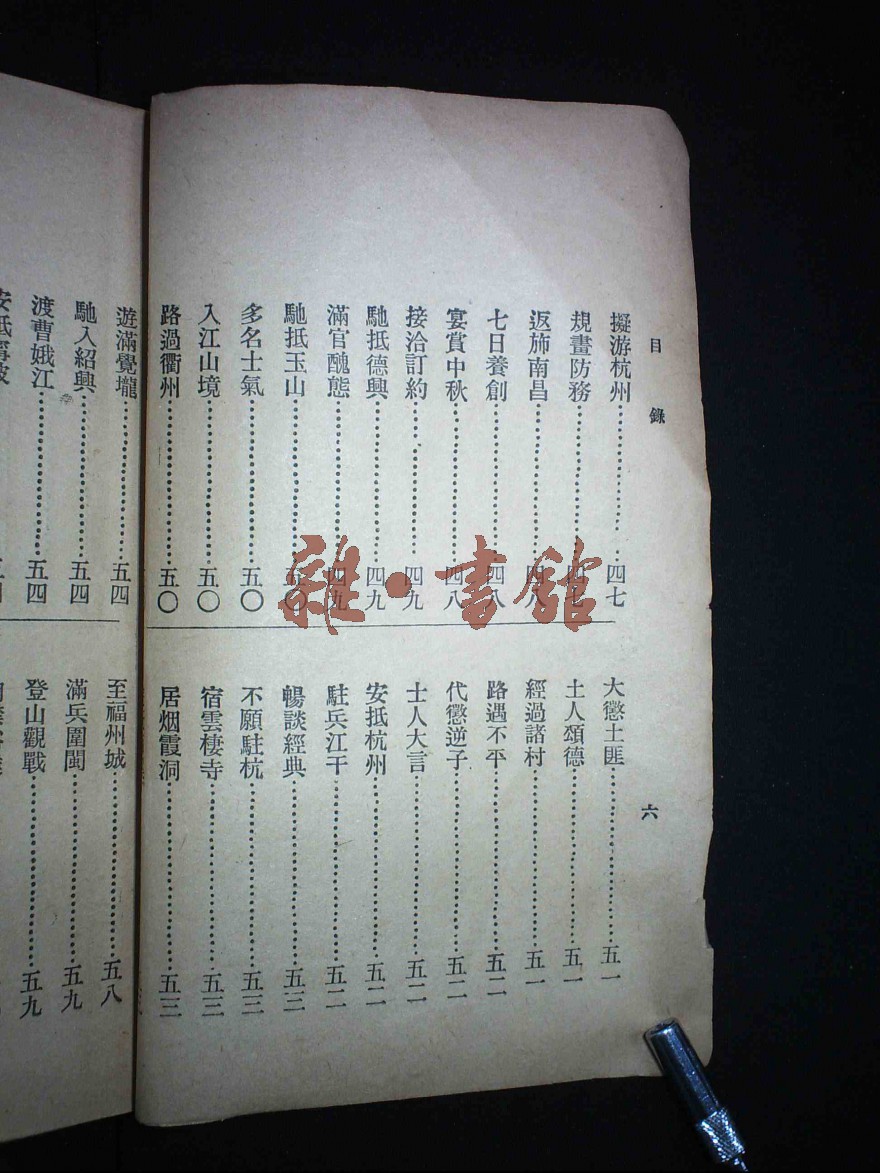 目錄
擬游杭州……四七
規畫防務……四七
返斾南昌……四八
七日養創……四八
宴賞中秋……四八
接洽訂約……四九
馳抵德興……四九
滿官醜態……四九
馳抵玉山……五〇
多名士氣……五〇
入江山境……五〇
路過衢州……五〇
大懲土匪……五一
土人頌德……五一
經過諸村……五一
路遇不平……五二
代懲逆子……五二
士人大言……五二
安抵杭州……五二
駐兵江干……五二
暢談經典……五三
不願駐杭……五三
宿雲棲寺……五三
居烟霞洞……五三
六
遊滿覺壠……五四
馳入紹興……五四
渡曹娥江……五四
至福州城……五八
滿兵圍閩……五九
登山觀戰……五九
雜·書館